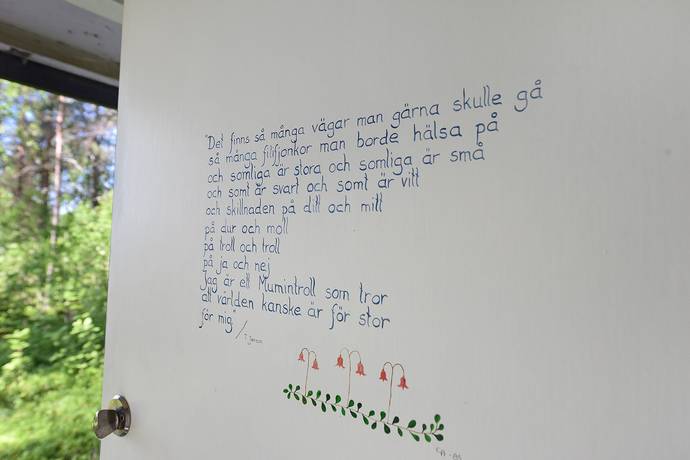 "Det finns så många vägar man gärna skulle gå
så många filifjonkor man borde hälsa på
och somliga är stora och somliga är små
och somt är svart och somt är vitt
och skillnaden på ditt och mitt
på dur och moll
på troll och troll
på ja och nej
Jag är ett Mumintroll som tror
att världen kanske är för stor
för mig"
/T. Jansson